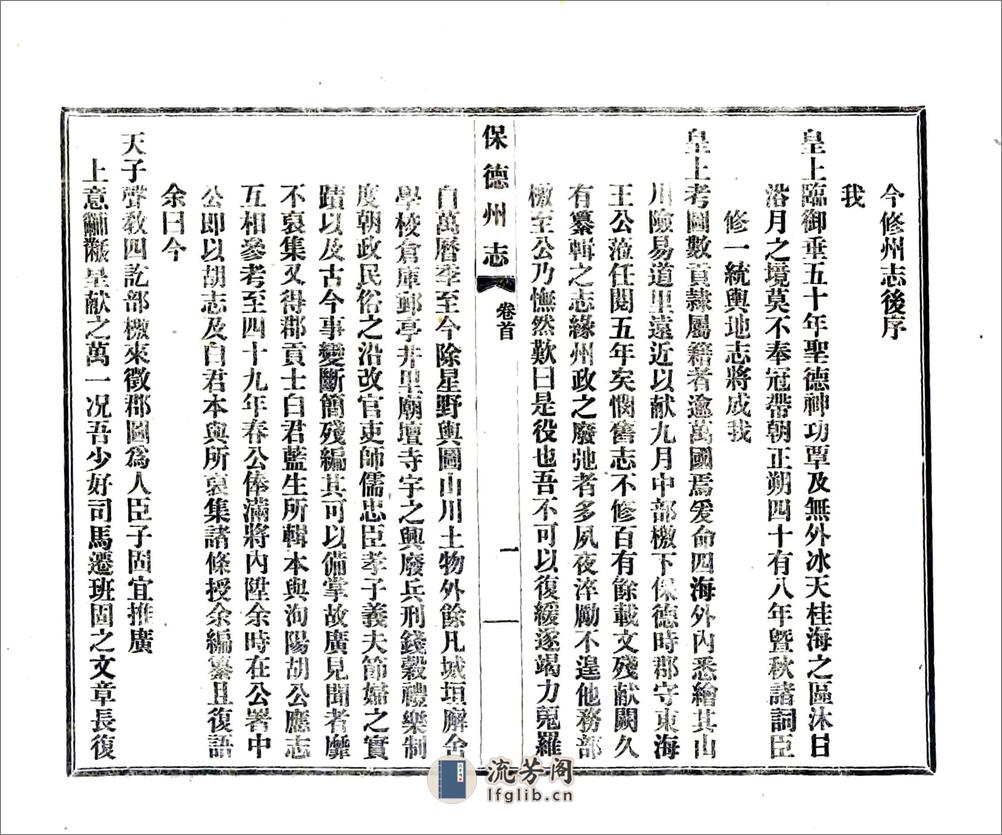 今修州志後序
我
皇上臨御垂五十年聖德神功覃及無外冰天桂海之區沐日
浴月之境莫不奉冠帶朝正朔四十有八年暨秋諸詞臣
修一統輿地志將成我
皇上考圖數貢隷屬籍者逾萬國焉爰命四海外內悉繪其山
川險易道里遠近以献九月中部檄下保德時郡守東海
王公蒞任閱五年矣憫舊志不修百有餘載文残献闕久
有纂輯之志緣州政之廢弛者多夙夜淬勵不遑他務部
檄至公乃憮然歎曰是役也吾不可以復緩遂竭力蒐羅
保德州志
卷首
一
自萬曆季至今除星野輿圖山川土物外餘凡城垣廨舍
學校倉庫郵亭井里廟壇寺宇之興廢兵刑錢穀禮樂制
度朝政民俗之沿改官吏師儒忠臣孝子義夫節婦之實
蹟以及古今事變斷簡残編其可以備掌故廣見聞者靡
不裒集又得郡貢士白君藍生所輯本與洵陽胡公應志
互相參考至四十九年春公俸滿將內陞余時在公署中
公即以胡志及白君本與所裒集諸條授余編纂且復語
余曰今
天子聲教四訖部檄來徵郡圖為人臣子固宜推廣
上意黼黻呈献之萬一况吾少好司馬遷班固之文章長復
流芳阁
lfglib.cn